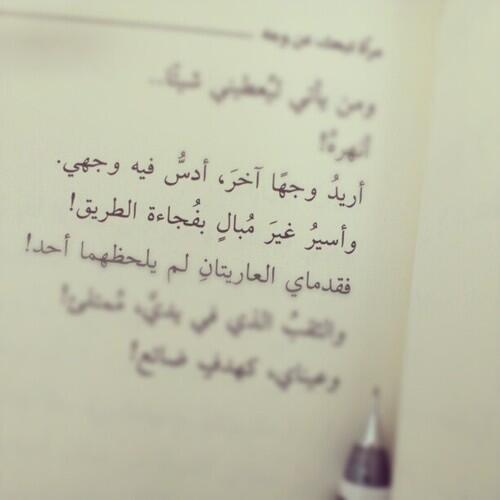 مرآة تبحث عن وجه
ومن يأتي ليُعطيني شيئًا...
أنهرهُ!
أريدُ وجهًا آخرَ، أدسُّ فيه وجهي.
وأسيرُ غيرَ مُبالٍ بفُجاءة الطريق!
فقدماي العاريتانِ لم يلحظهما أحد!
والثقبُ الذي في يديَّ، مُمتلئ!
وعيناي، كهدفٍ ضائع!